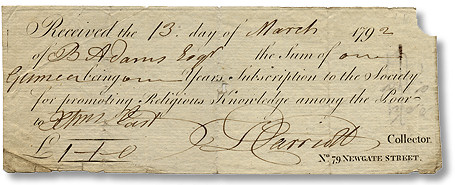 Received the 13. day of March 1792
of B Adams Esqr the Sum of one
Guinea being one Years Subscription to the Society
for promoting Religious Knowledge among the Poor
to Xmas last
£ 1-1-0 Collector.
No. 79 NEWGATE STREET.